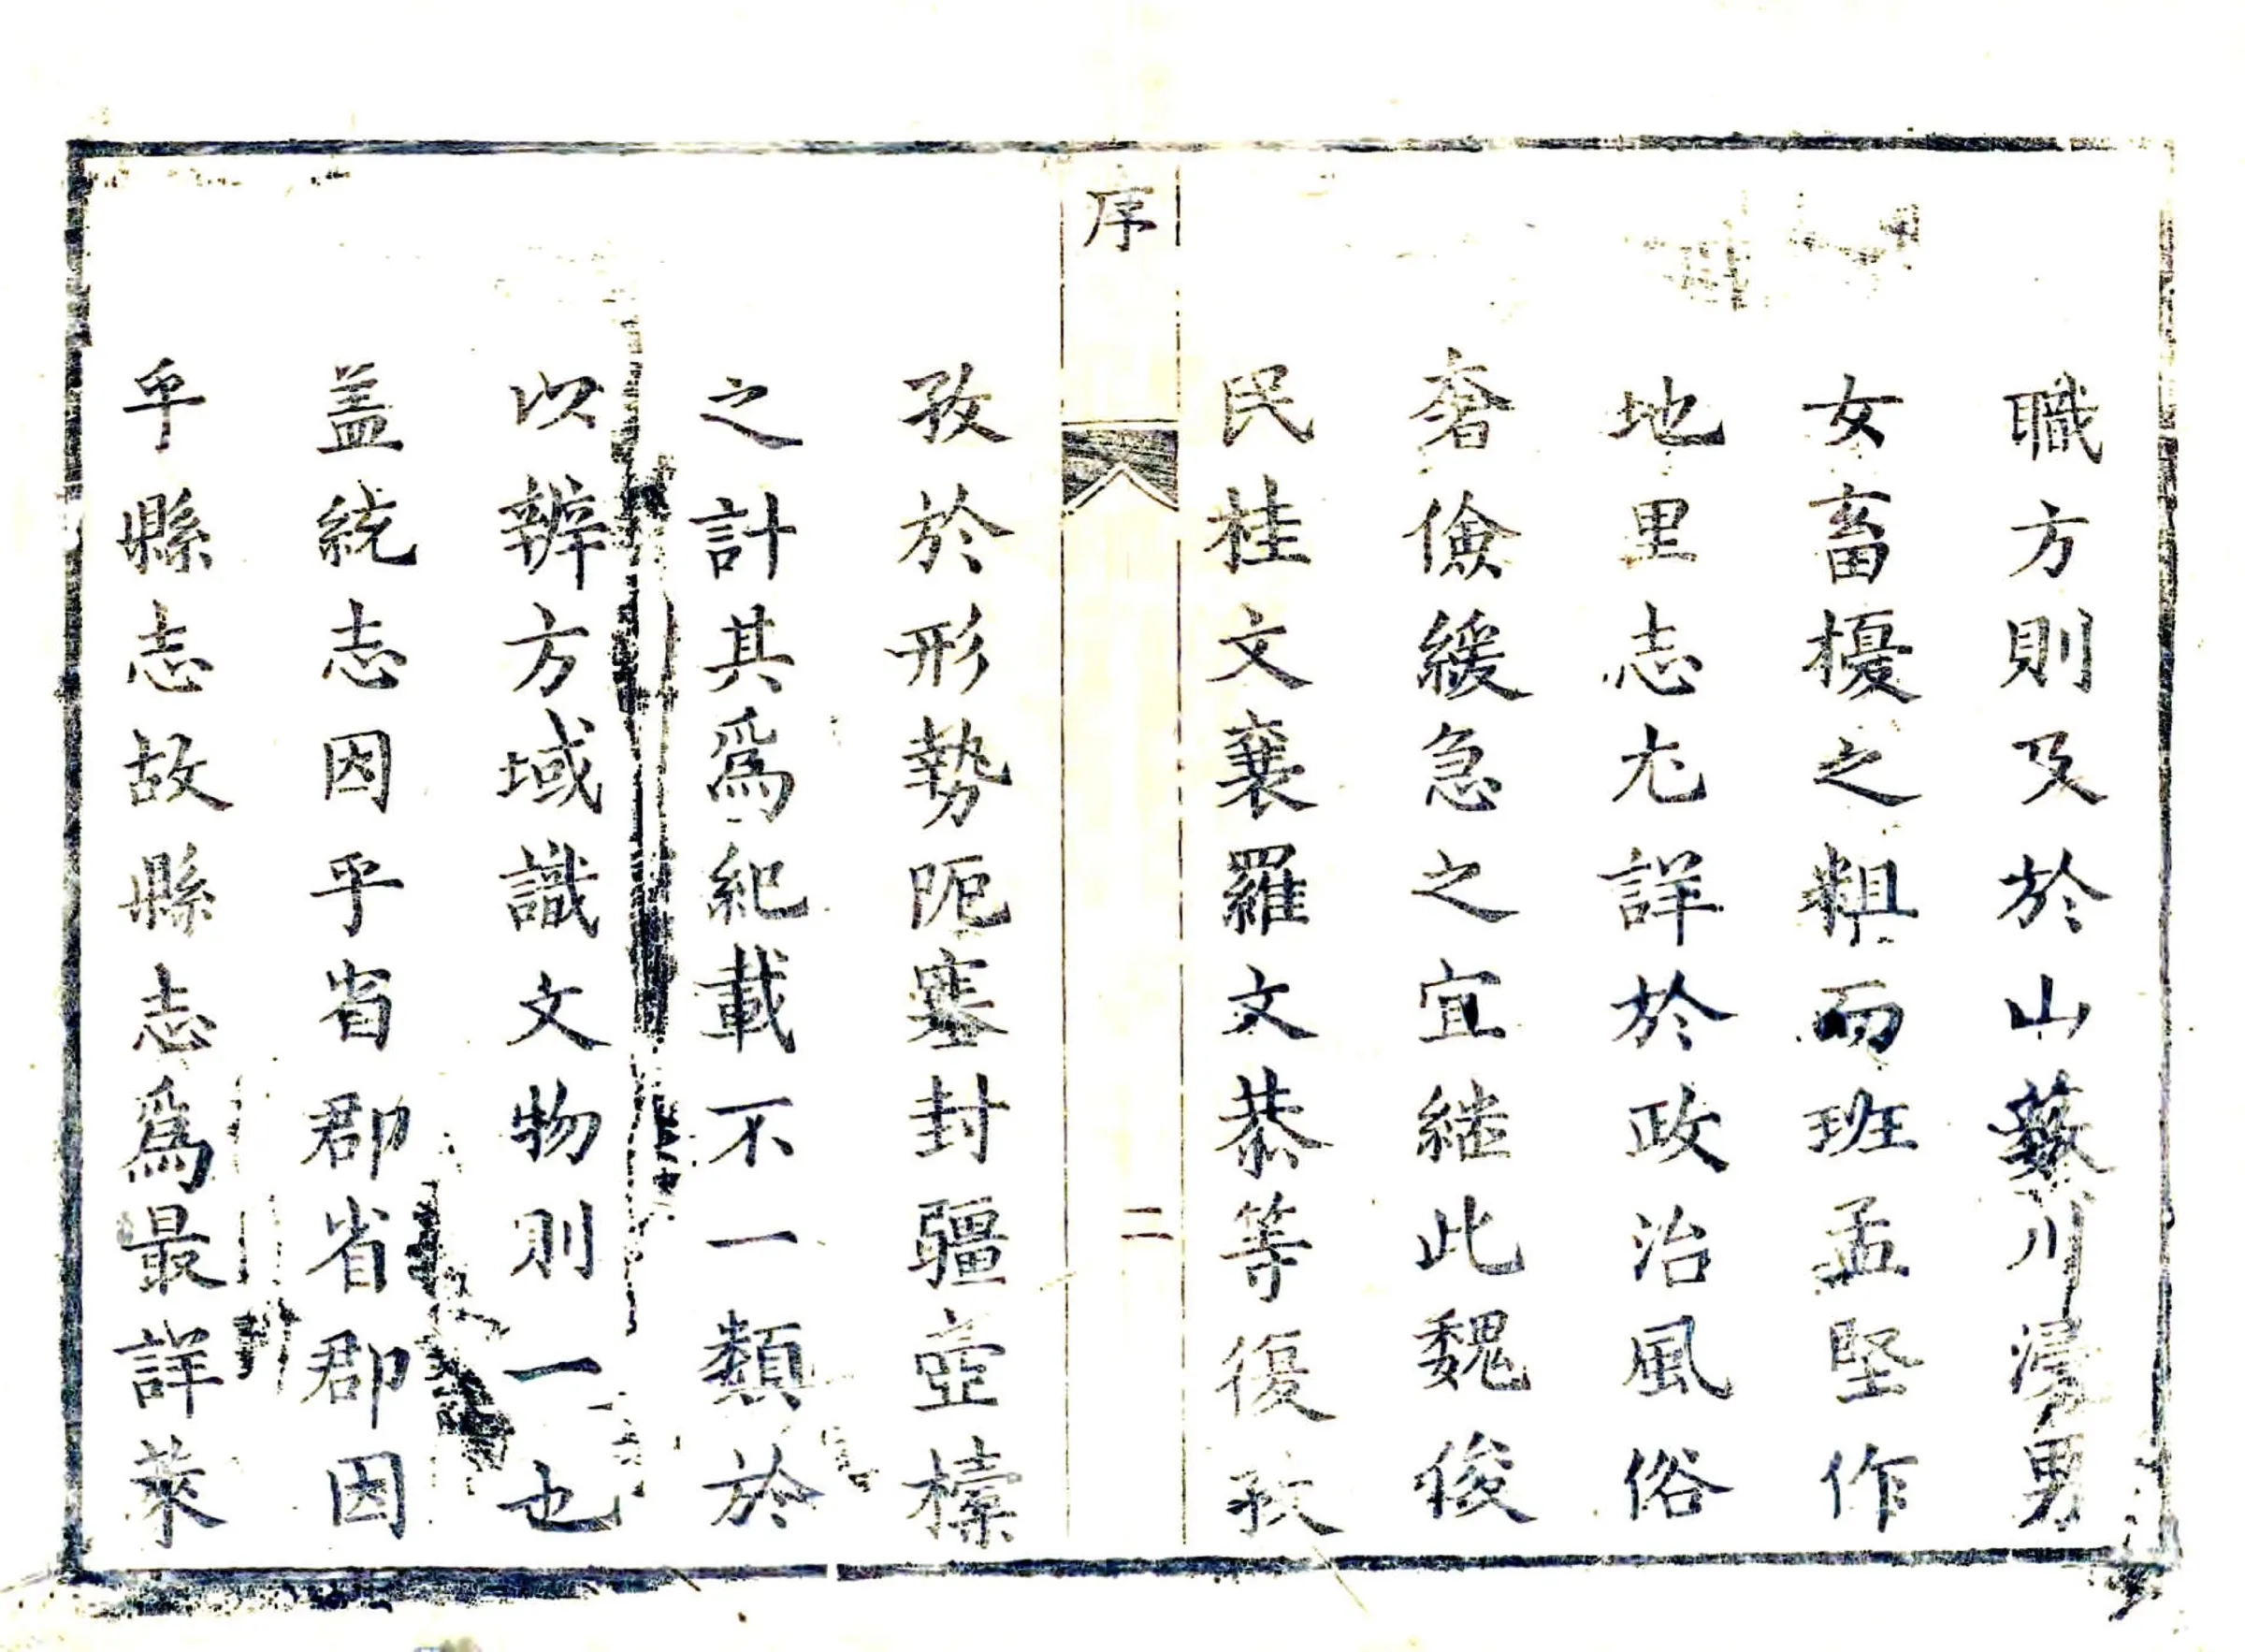 職方則及於山藪川浸男
女畜擾之粗而班孟堅作
地里志尤詳於政治風俗
奢儉緩急之宜継此魏俊
民桂文襄羅文恭等復攷
序
二
攷於形勢阨塞封疆壺檺
之計其爲紀載不一類於
以辨方域識文物則一也
盖統志因乎省郡省郡因
乎縣志故縣志爲最詳萊